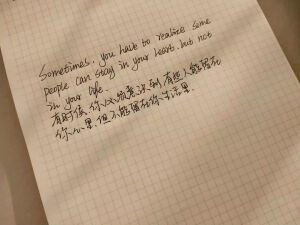 Sometimes, you have to realize some
people can stay in your heart, but not
in your life.
有时候，你必须意识到有些人能留在
你心里，但不能留在你生活里.